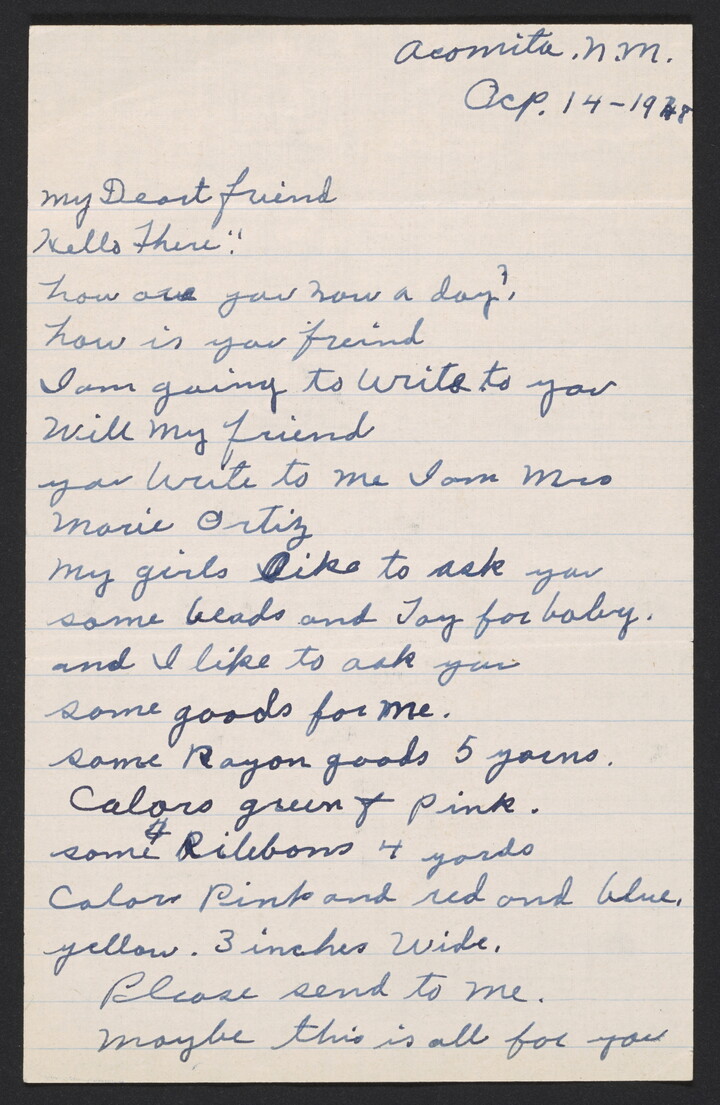 Acomita. N.M.
Acp. 14-19
my Deart friend
Hello There"!
how are you now a day?.
how is you freind
I am going to write to you
Will my friend
you Write to me I am Mrs
Marie Ortiz
my girls like to ask you
some beads and Toy for baby.
and I like to ask you
some goods for me.
some Rayon goods 5 yarns.
Colors green & Pink.
some Ribbons 4 yards
Color Pink and red and blue.
yellow. 3 inches Wide.
Please send to me.
Maybe this is all for you